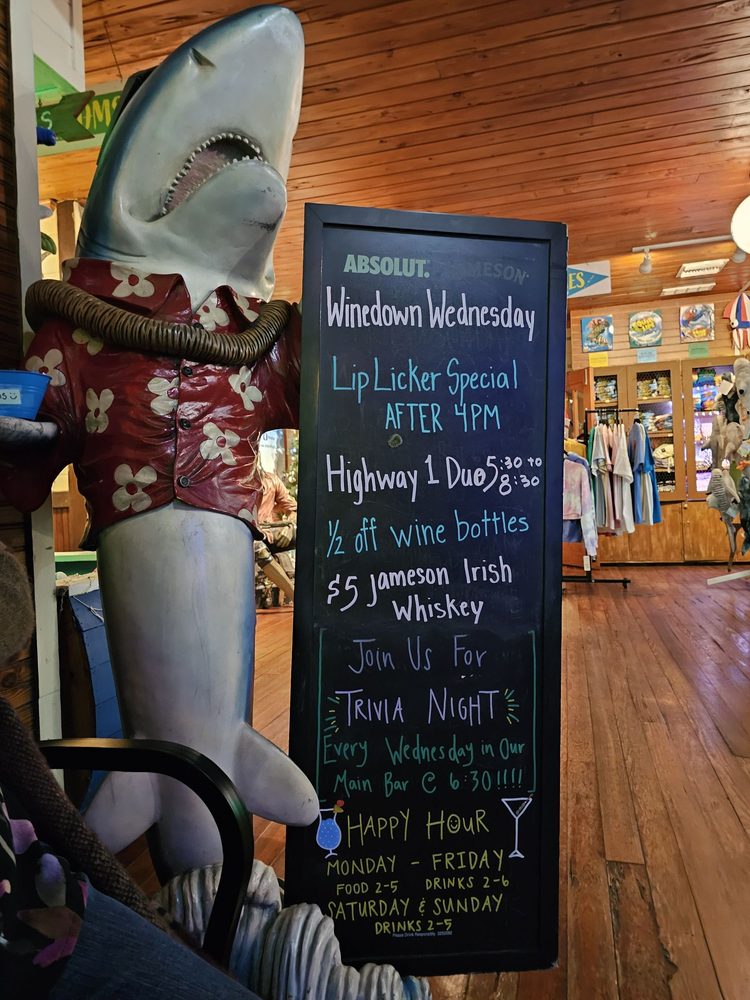 OMS
S
ES
ABSOLUT. JAMESON
Winedown Wednesday
Lip Licker Special
AFTER 4PM
Highway 1 Duo 5:30 to
8:30
1/2 off wine bottles
$5 Jameson Irish
Whiskey
Join Us For
TRIVIA NIGHT
Every Wednesday in Our
Main Bar @ 6:30!!!!
HAPPY HOUR
MONDAY - FRIDAY
FOOD 2-5 DRINKS 2-6
SATURDAY & SUNDAY
DRINKS 2-5